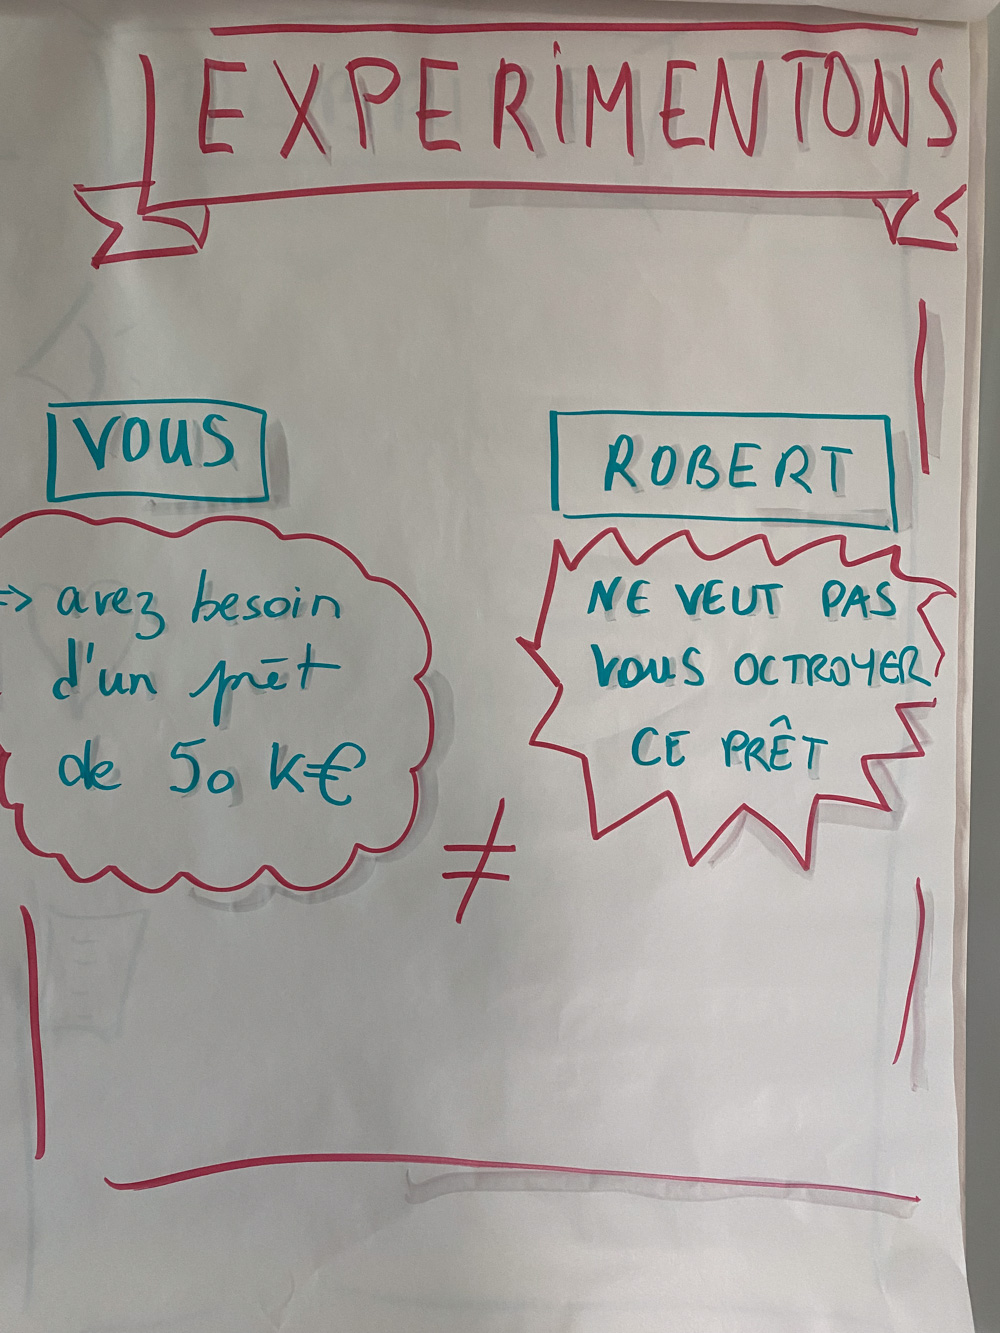 EXPERIMENTONS
VOUS
=> avez besoin
d'un prêt
de 50 k€
≠
ROBERT
NE VEUT PAS
VOUS OCTROYER
CE PRÊT